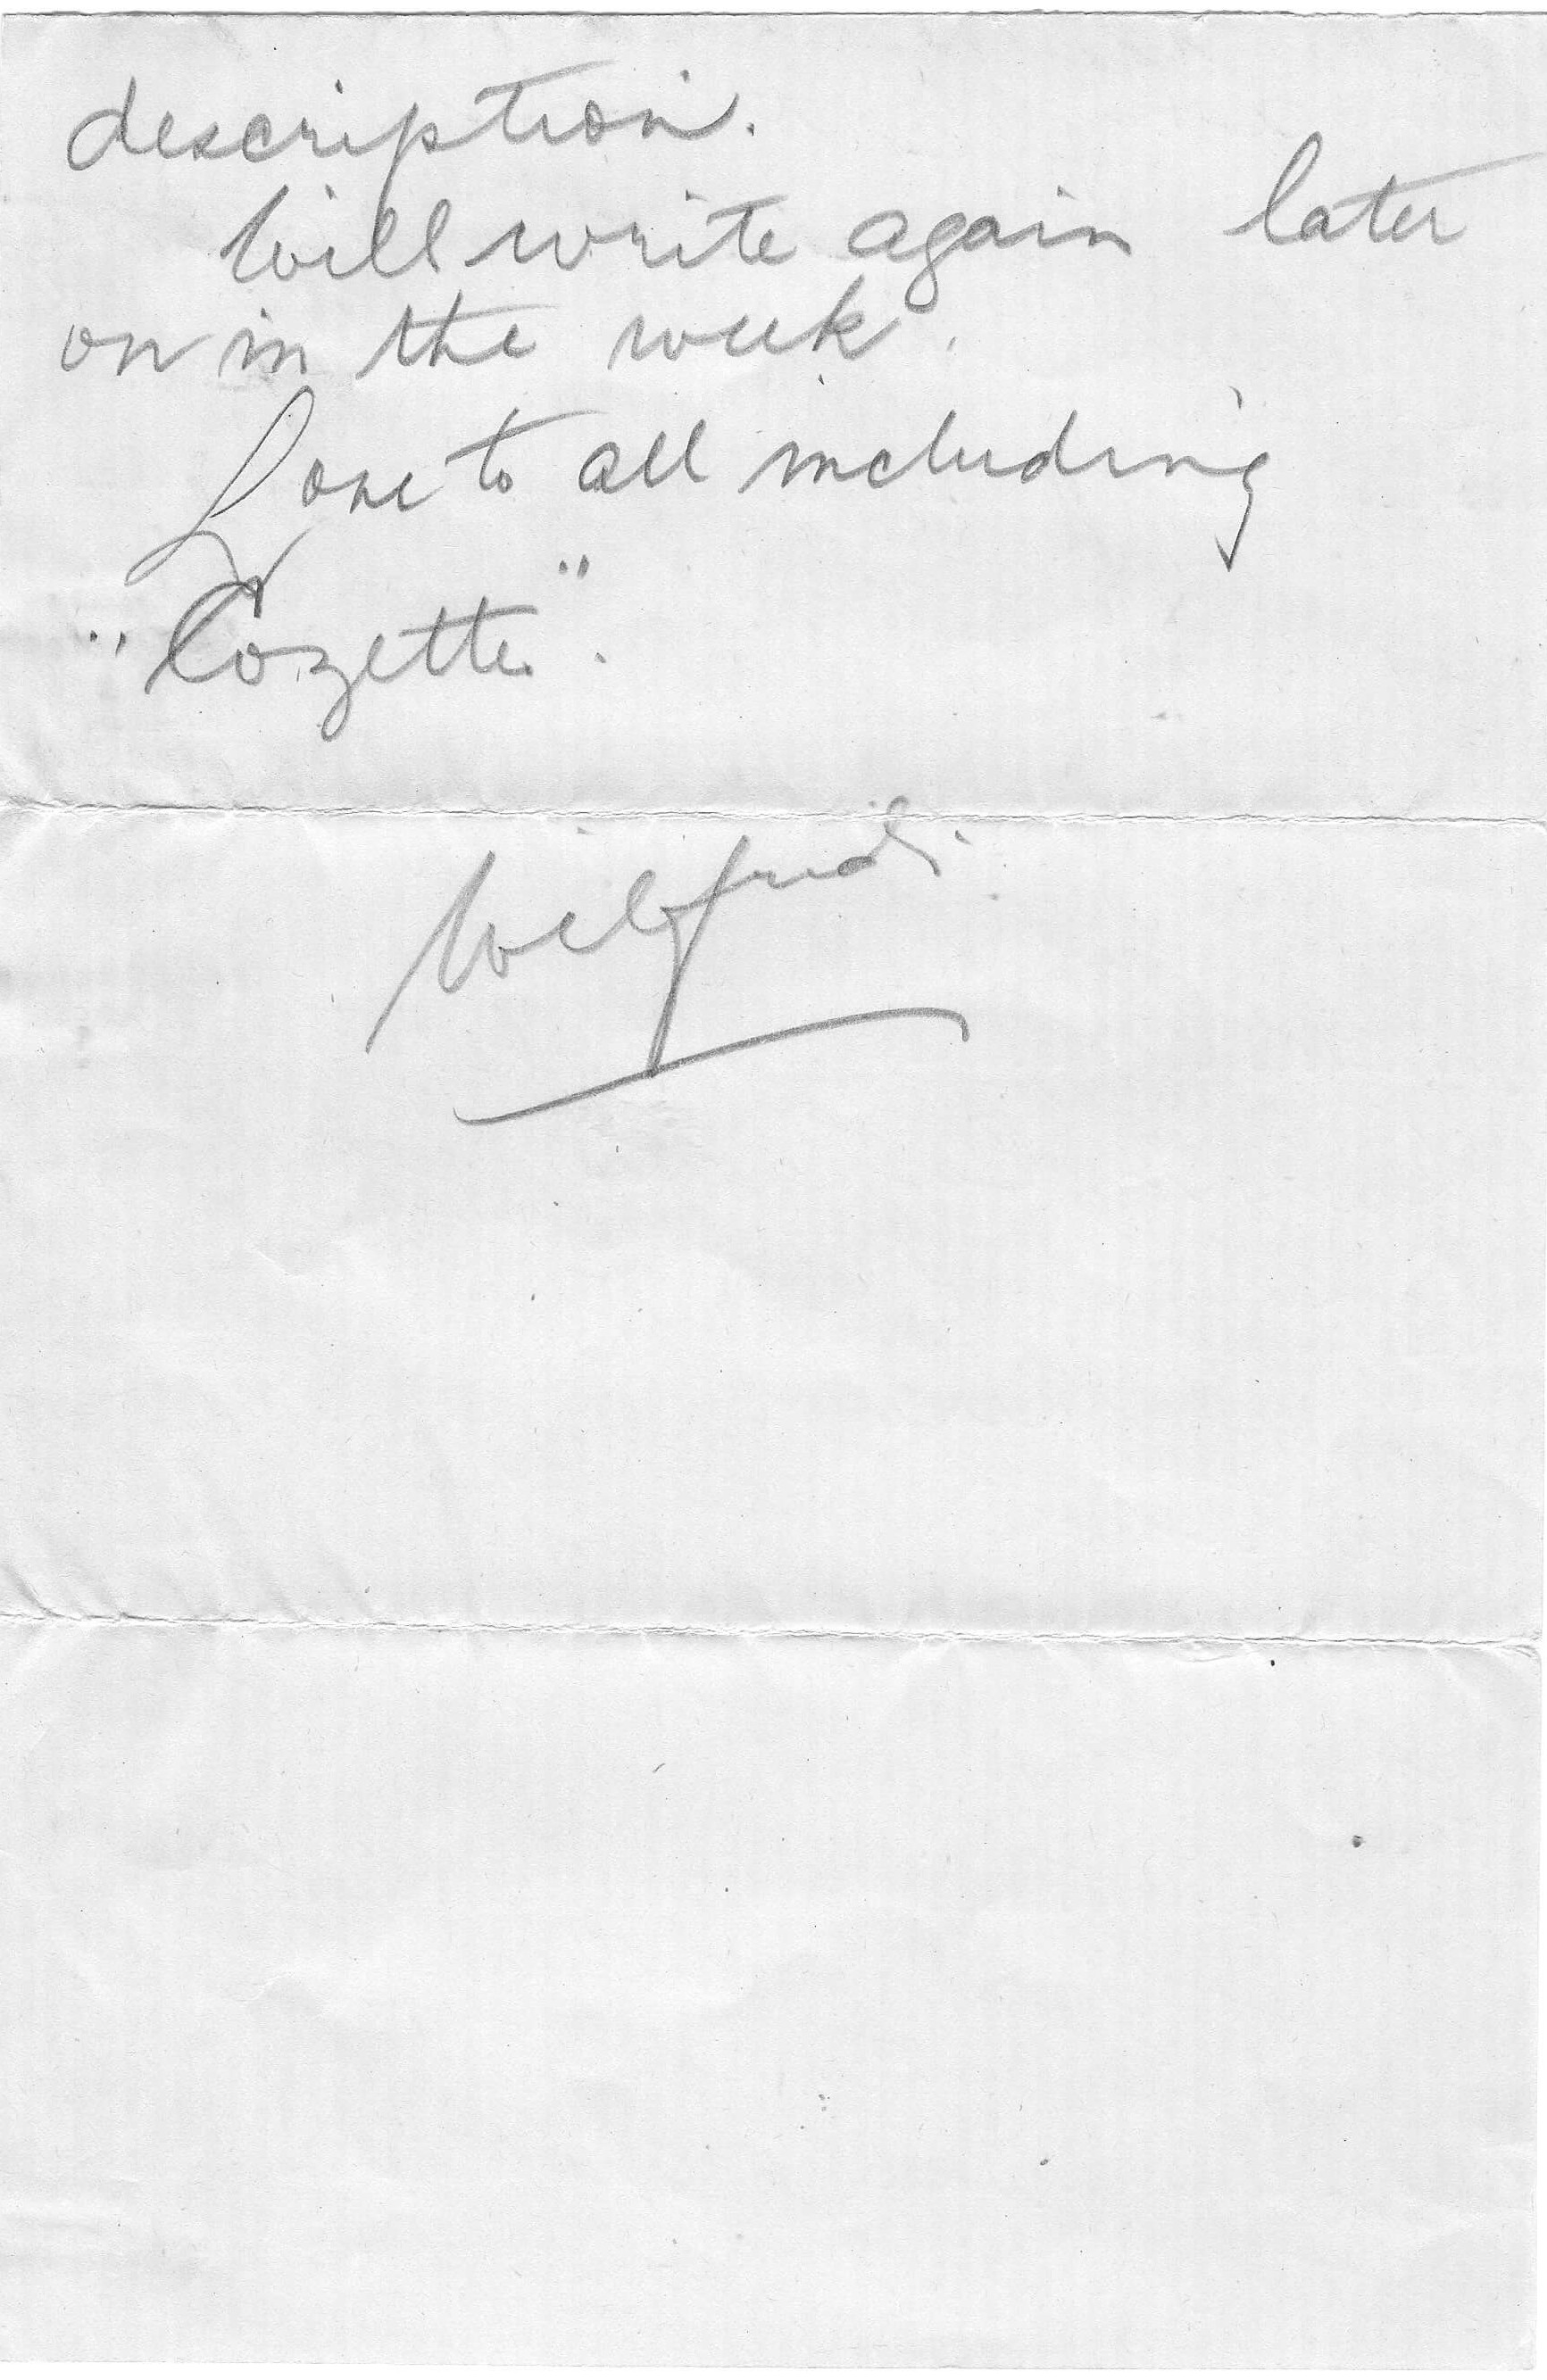 description.
Will write again later
on in the week.
Love to all including
"Cozette".
Wilfrid.